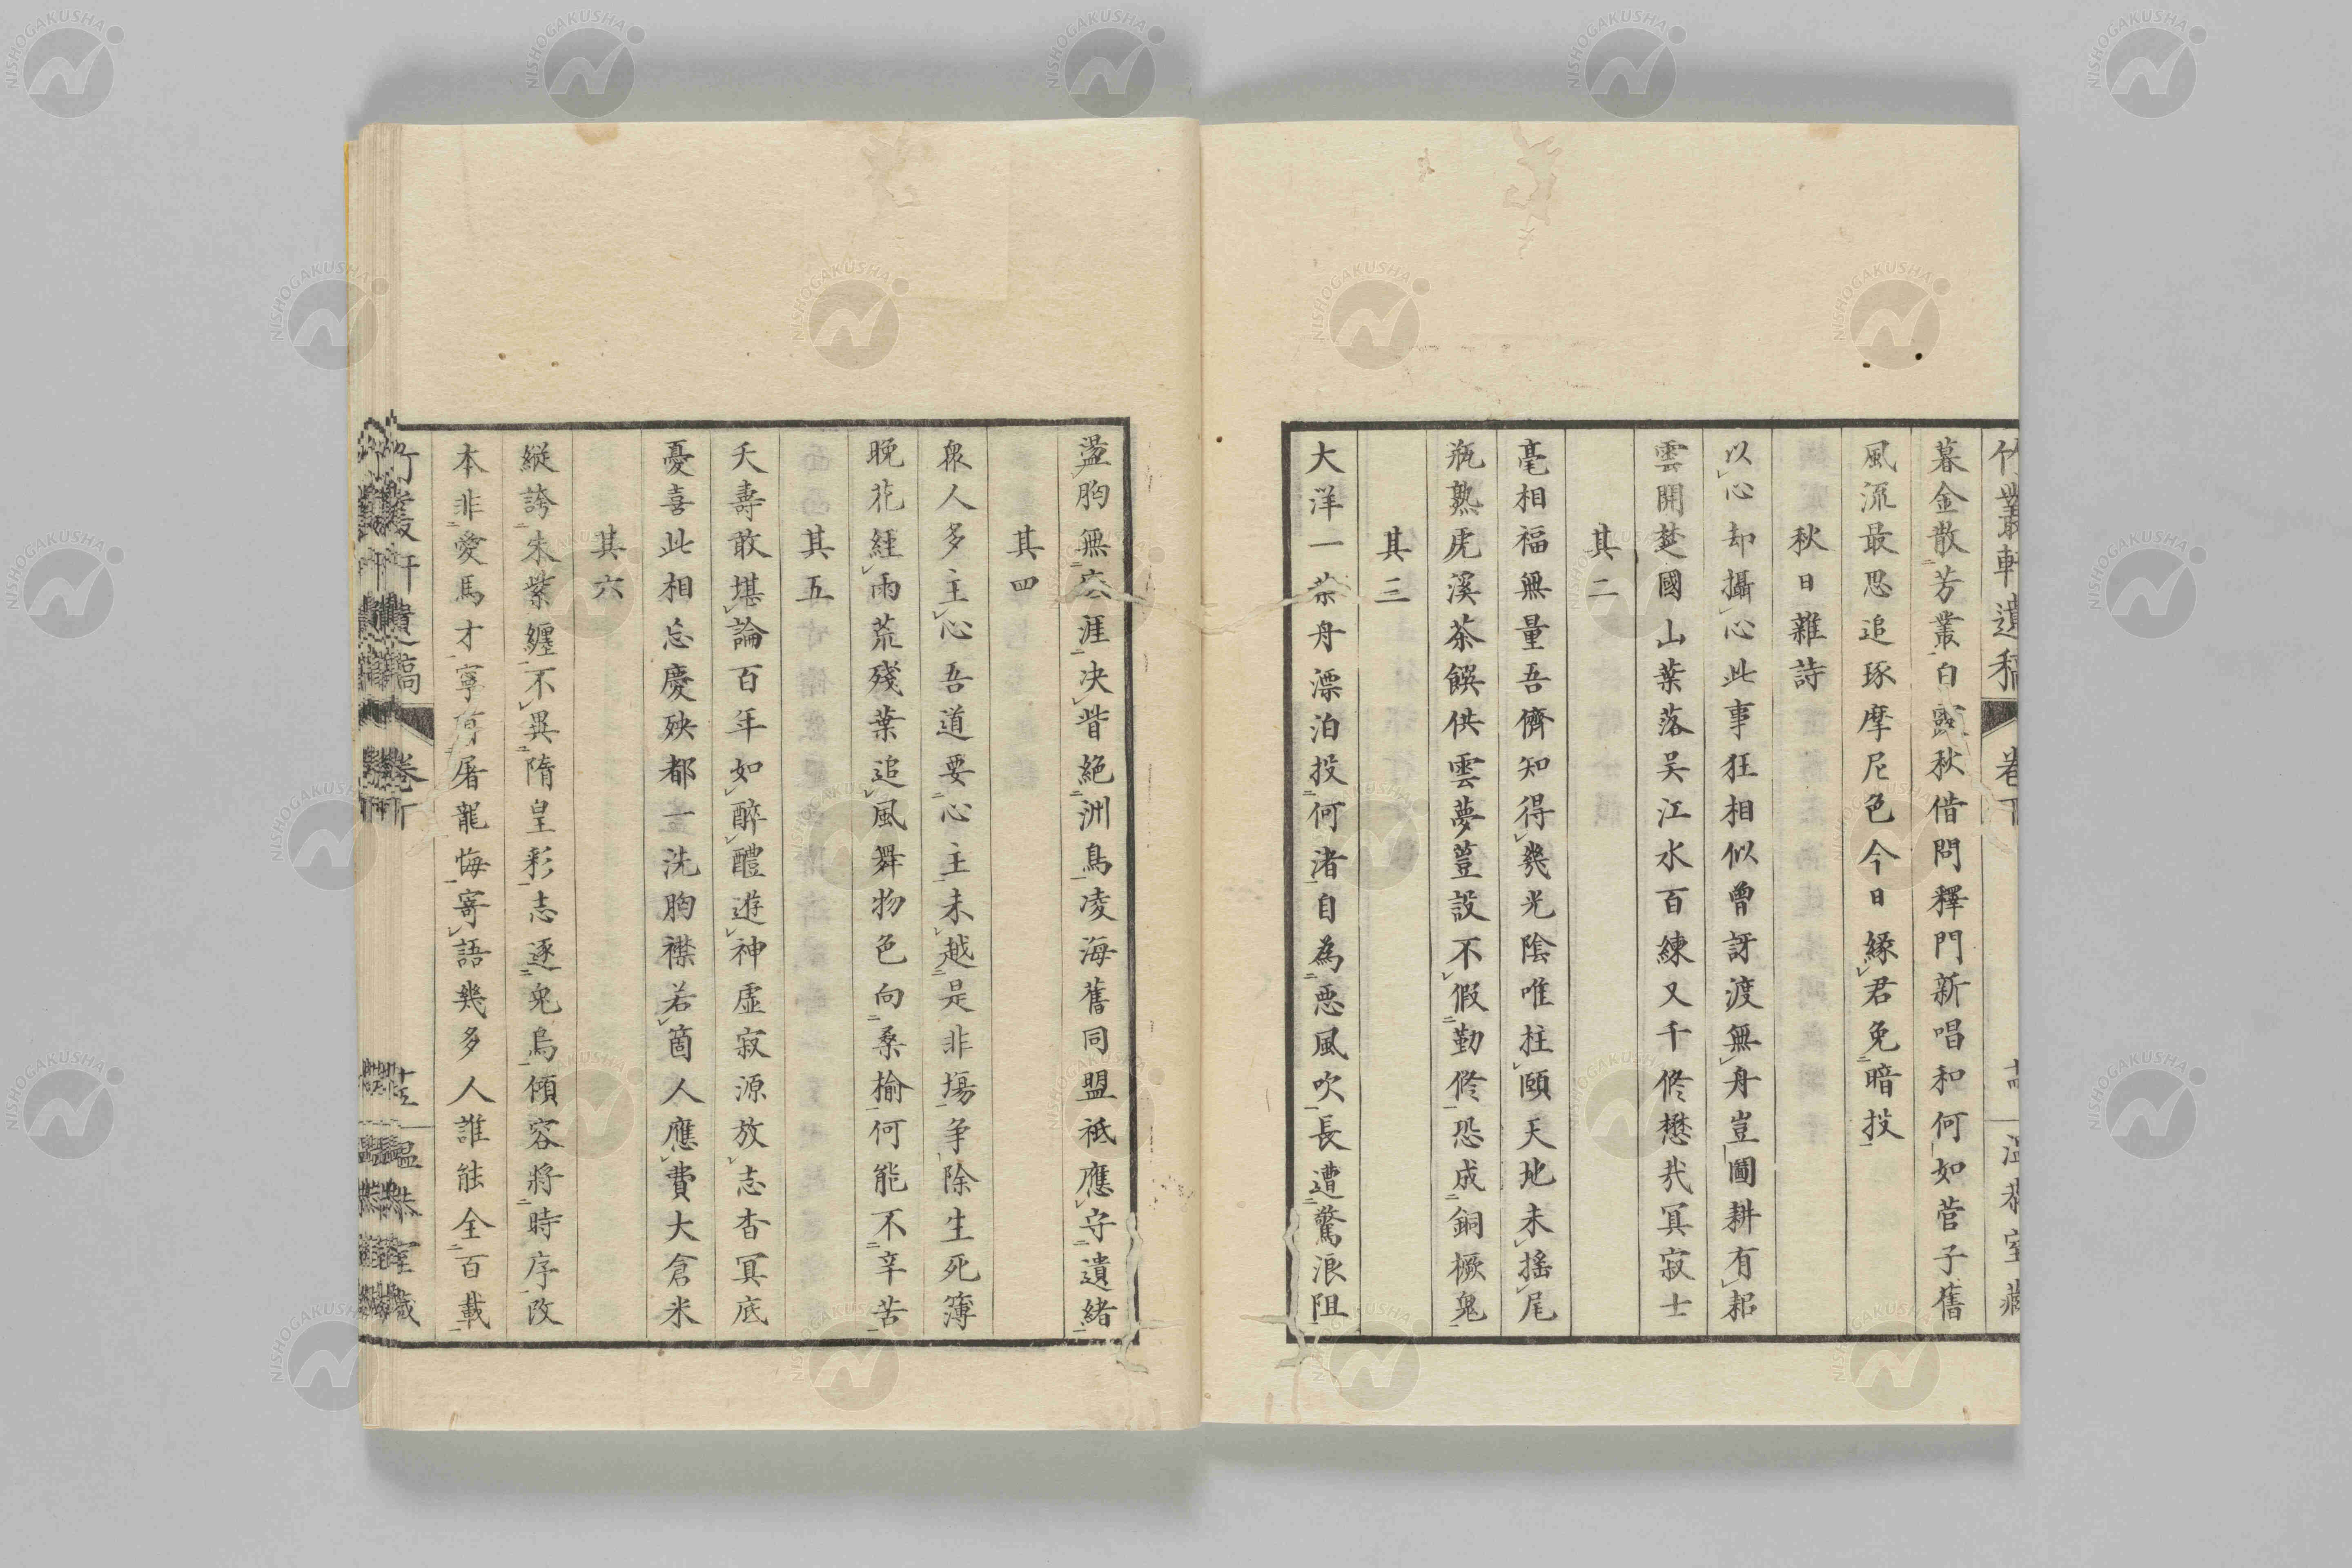 竹叢軒遺稿 卷下 温恭室藏
暮金散芳叢白露秋借問釋門新唱和何如菅子舊
風流最思追琢摩尼色今日縁君免暗投
秋日雜詩
以心却攝心此事狂相似曾訝渡無舟豈圖耕有耜
雲開楚國山葉落吴江水百練又千修懋哉冥寂士
其二
毫相福無量吾儕知得幾光陰唯拄頤天地未搖尾
瓶熟虎溪茶饌供雲夢豈設不假勤修恐成銅橛鬼
其三
大洋一茶舟漂泊投何渚自為惡風吹長遭驚浪阻
盪胸無涯决眥絶洲鳥凌海舊同盟祇應守遺緒
其四
衆人多主心吾道要心主未越是非塲争除生死簿
晚花經雨荒殘葉追風舞物色向桑榆何能不辛苦
其五
夭壽敢堪論百年如醉醴遊神虚寂源放志杳冥底
憂喜此相忘慶殃都一洗胸襟若箇人應費大倉米
其六
縦誇朱紫纒不異隋皇彩志逐兔烏傾容將時序改
本非愛馬才寧屠龍悔寄語幾多人誰能全百載
NISHOGAKUSHA